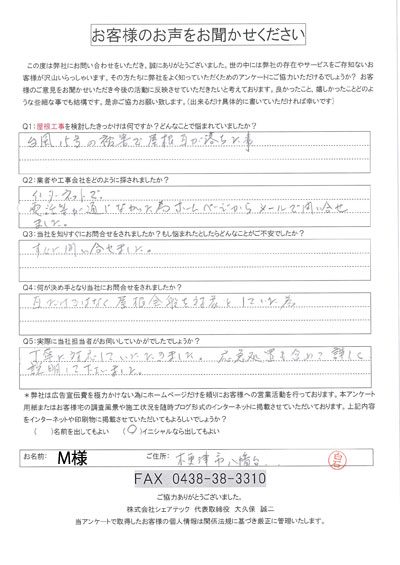 お客様のお声をお聞かせください
この度は弊社にお問い合わせをいただき、誠にありがとうございました。世の中には弊社の存在やサービスをご存知ないお
客様が沢山いらっしゃいます。その方たちに弊社をよく知っていただくためのアンケートにご協力いただけるでしょうか? お客
様のご意見をお聞かせいただき今後の活動に反映させていただきたいと考えております。良かったこと、嬉しかったことどのよ
うな些細な事でも結構です。是非ご協力お願い致します。(出来るだけ具体的に書いていただければ幸いです)
Q1:屋根工事を検討したきっかけは何ですか?どんなことで悩まれていましたか?
台風15号の被害で屋根瓦が落ちた事
Q2:業者や工事会社をどのように探されましたか?
インターネットで。
電話等が通じなかった為ホームページからメールで問い合せ
ました。
Q3:当社を知りすぐにお問合せをされましたか?もし悩まれたとしたらどんなことがご不安でしたか?
すぐに問い合せました。
Q4:何が決め手となり当社にお問合せをされましたか?
瓦だけではなく屋根全般を対象としている為
Q5:実際に当社担当者がお伺いしていかがでしたでしょうか?
丁寧に対応していただきました。応急処置も含めて詳しく
説明して下さいました。
*弊社は広告宣伝費を極力かけない為にホームページだけを頼りにお客様への営業活動を行っております。本アンケート
用紙またはお客様宅の調査風景や施工状況を随時ブログ形式のインターネットに掲載させていただいております。上記内容
をインターネットや印刷物に掲載させていただいてもよろしいでしょうか?
( )名前を出してもよい (○)イニシャルなら出してもよい
お名前: M様 ご住所: 木更津市八幡台
FAX 0438-38-3310
ご協力ありがとうございました。
株式会社シェアテック 代表取締役 大久保 誠二
当アンケートで取得したお客様の個人情報は関係法規に基づき厳正に管理いたします。